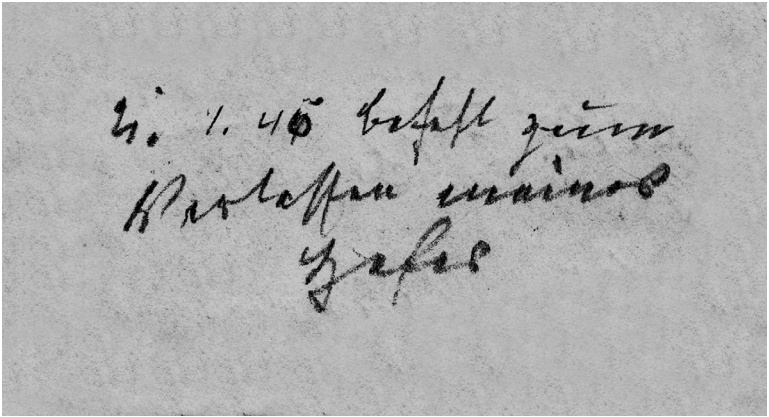 21. 1. 45 Befehl zum
Verlassen meines
Hofes